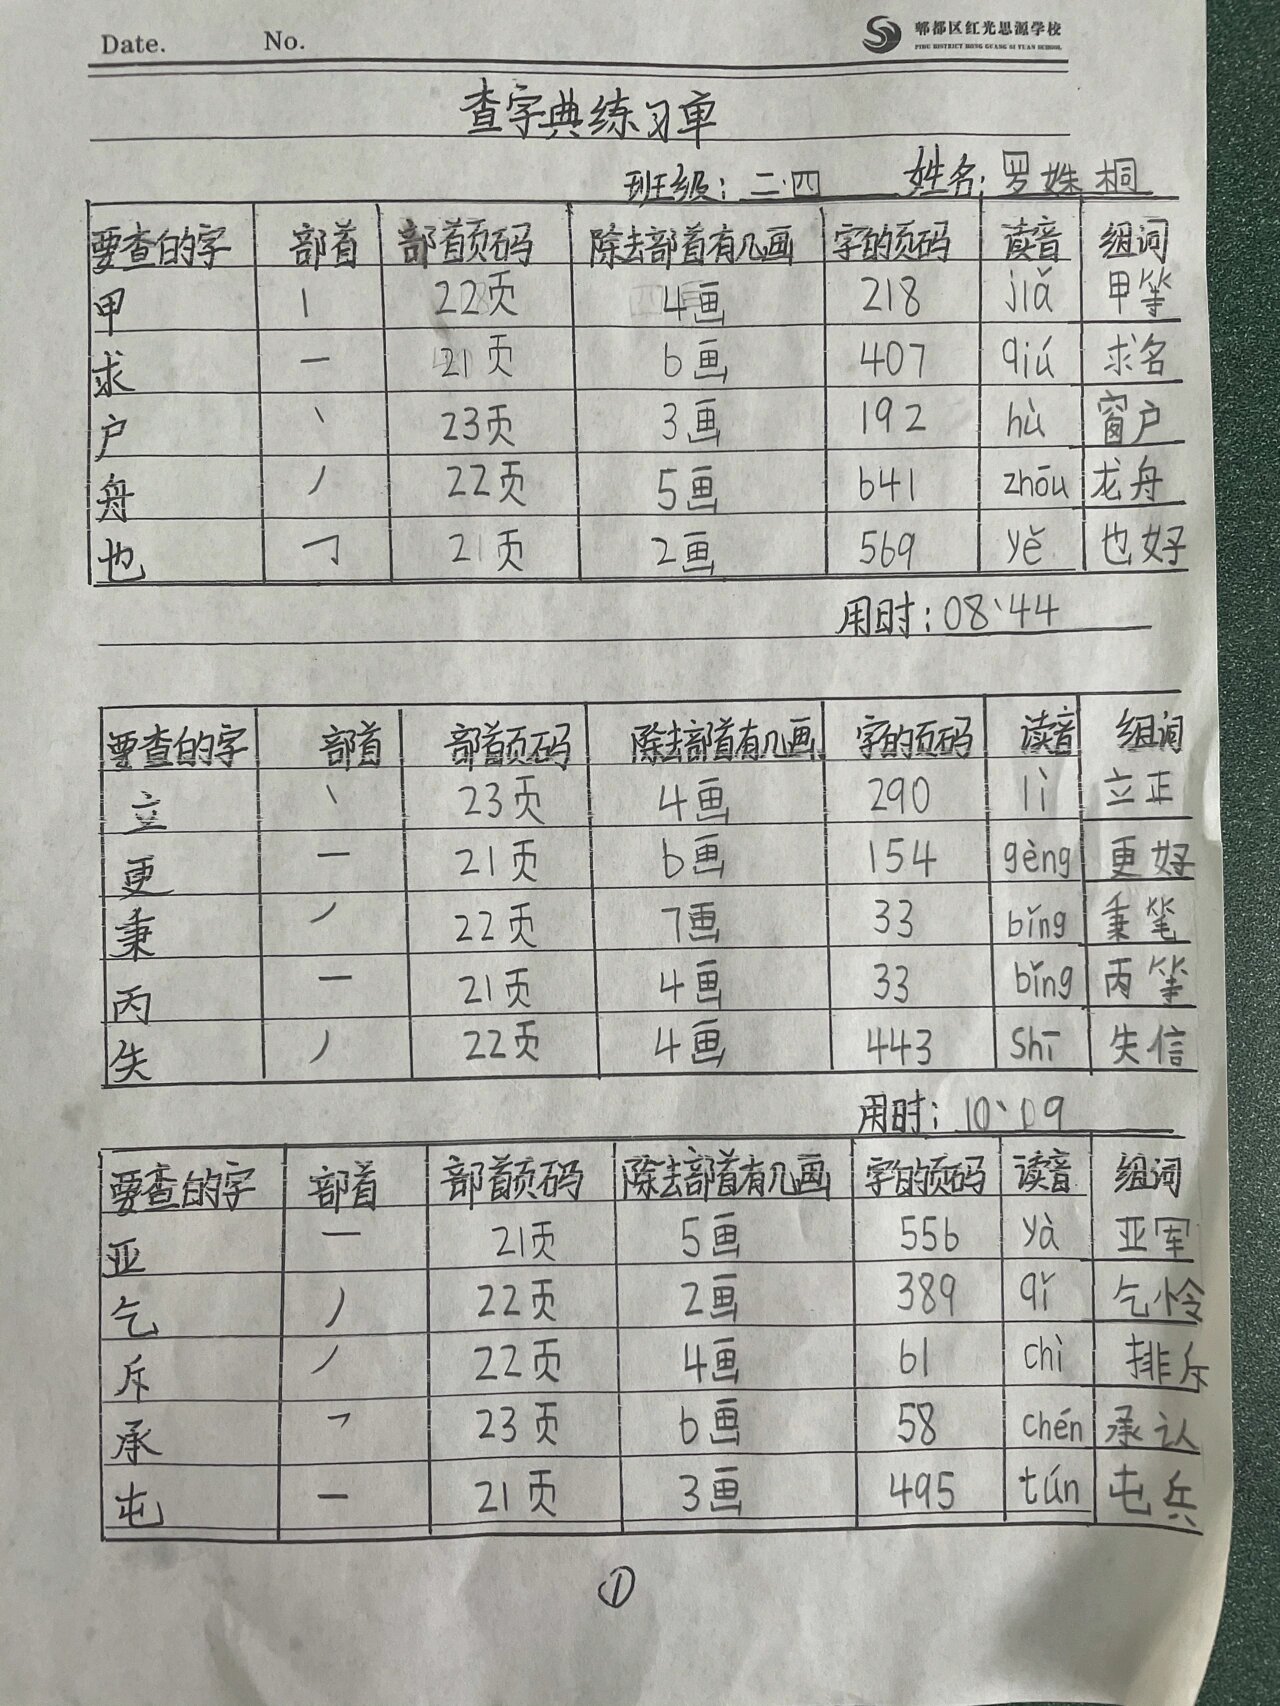 Date. No. 郫都区红光思源学校
PIDU DISTRICT HONG GUANG SI YUAN SCHOOL
查字典练习单
班级: 二.四 姓名: 罗姝桐
要查的字 部首 部首页码 除去部首有几画 字的页码 读音 组词
甲 丨 22页 4画 218 jiǎ 甲等
求 一 21页 6画 407 qiú 求名
户 丶 23页 3画 192 hù 窗户
舟 丿 22页 5画 641 zhōu 龙舟
也 ㇆ 21页 2画 569 yě 也好
用时: 08、44
要查的字 部首 部首页码 除去部首有几画 字的页码 读音 组词
立 丶 23页 4画 290 lì 立正
更 一 21页 6画 154 gèng 更好
秉 丿 22页 7画 33 bǐng 秉笔
丙 一 21页 4画 33 bǐng 丙等
失 丿 22页 4画 443 shī 失信
用时: 10、09
要查的字 部首 部首页码 除去部首有几画 字的页码 读音 组词
亚 一 21页 5画 556 yà 亚军
乞 丿 22页 2画 389 qǐ 乞怜
斥 丿 22页 4画 61 chì 排斥
承 乛 23页 6画 58 chén 承认
屯 一 21页 3画 495 tún 屯兵
①